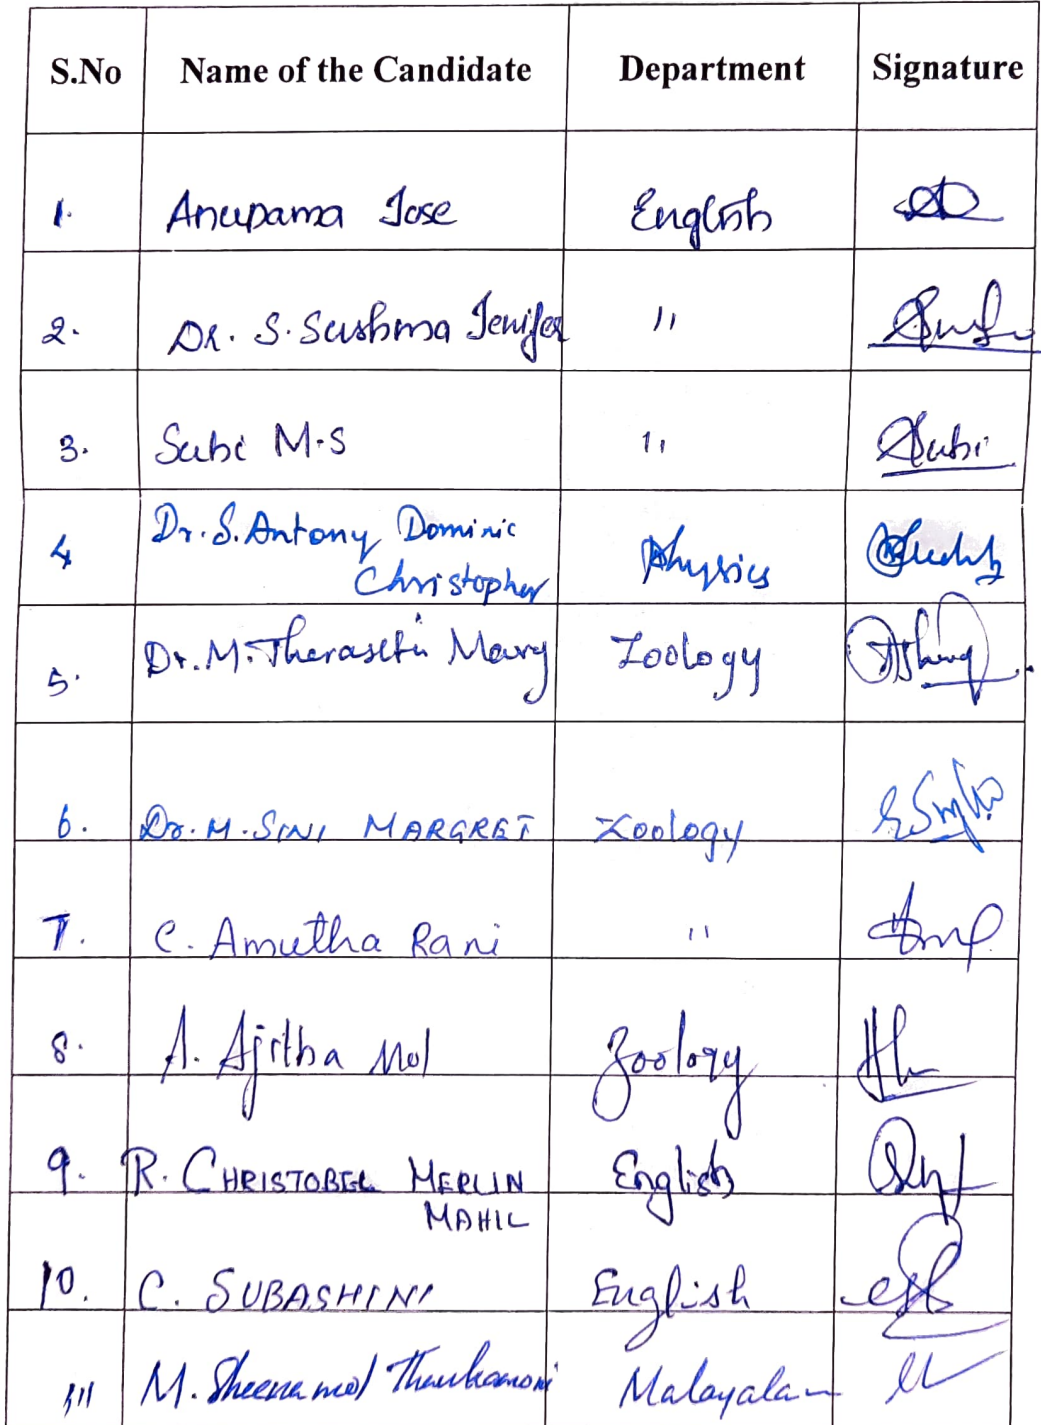 S.No Name of the Candidate Department Signature
1. Anupama Jose English
2. Dr. S. Sushma Jenifer "
3. Subi M.S " Subi
4 Dr. S. Antony Dominic
Christopher Physics
5. Dr. M. Mary Zoology
6. Dr. M. SINI MARGRET Zoology
7. C. Amutha Rani "
8. A. Ajitha Mol Zoology
9. R. CHRISTOBEL MERLIN English
MAHIL
10. C. SUBASHINI English
11 M. Sheenamol Malayalam